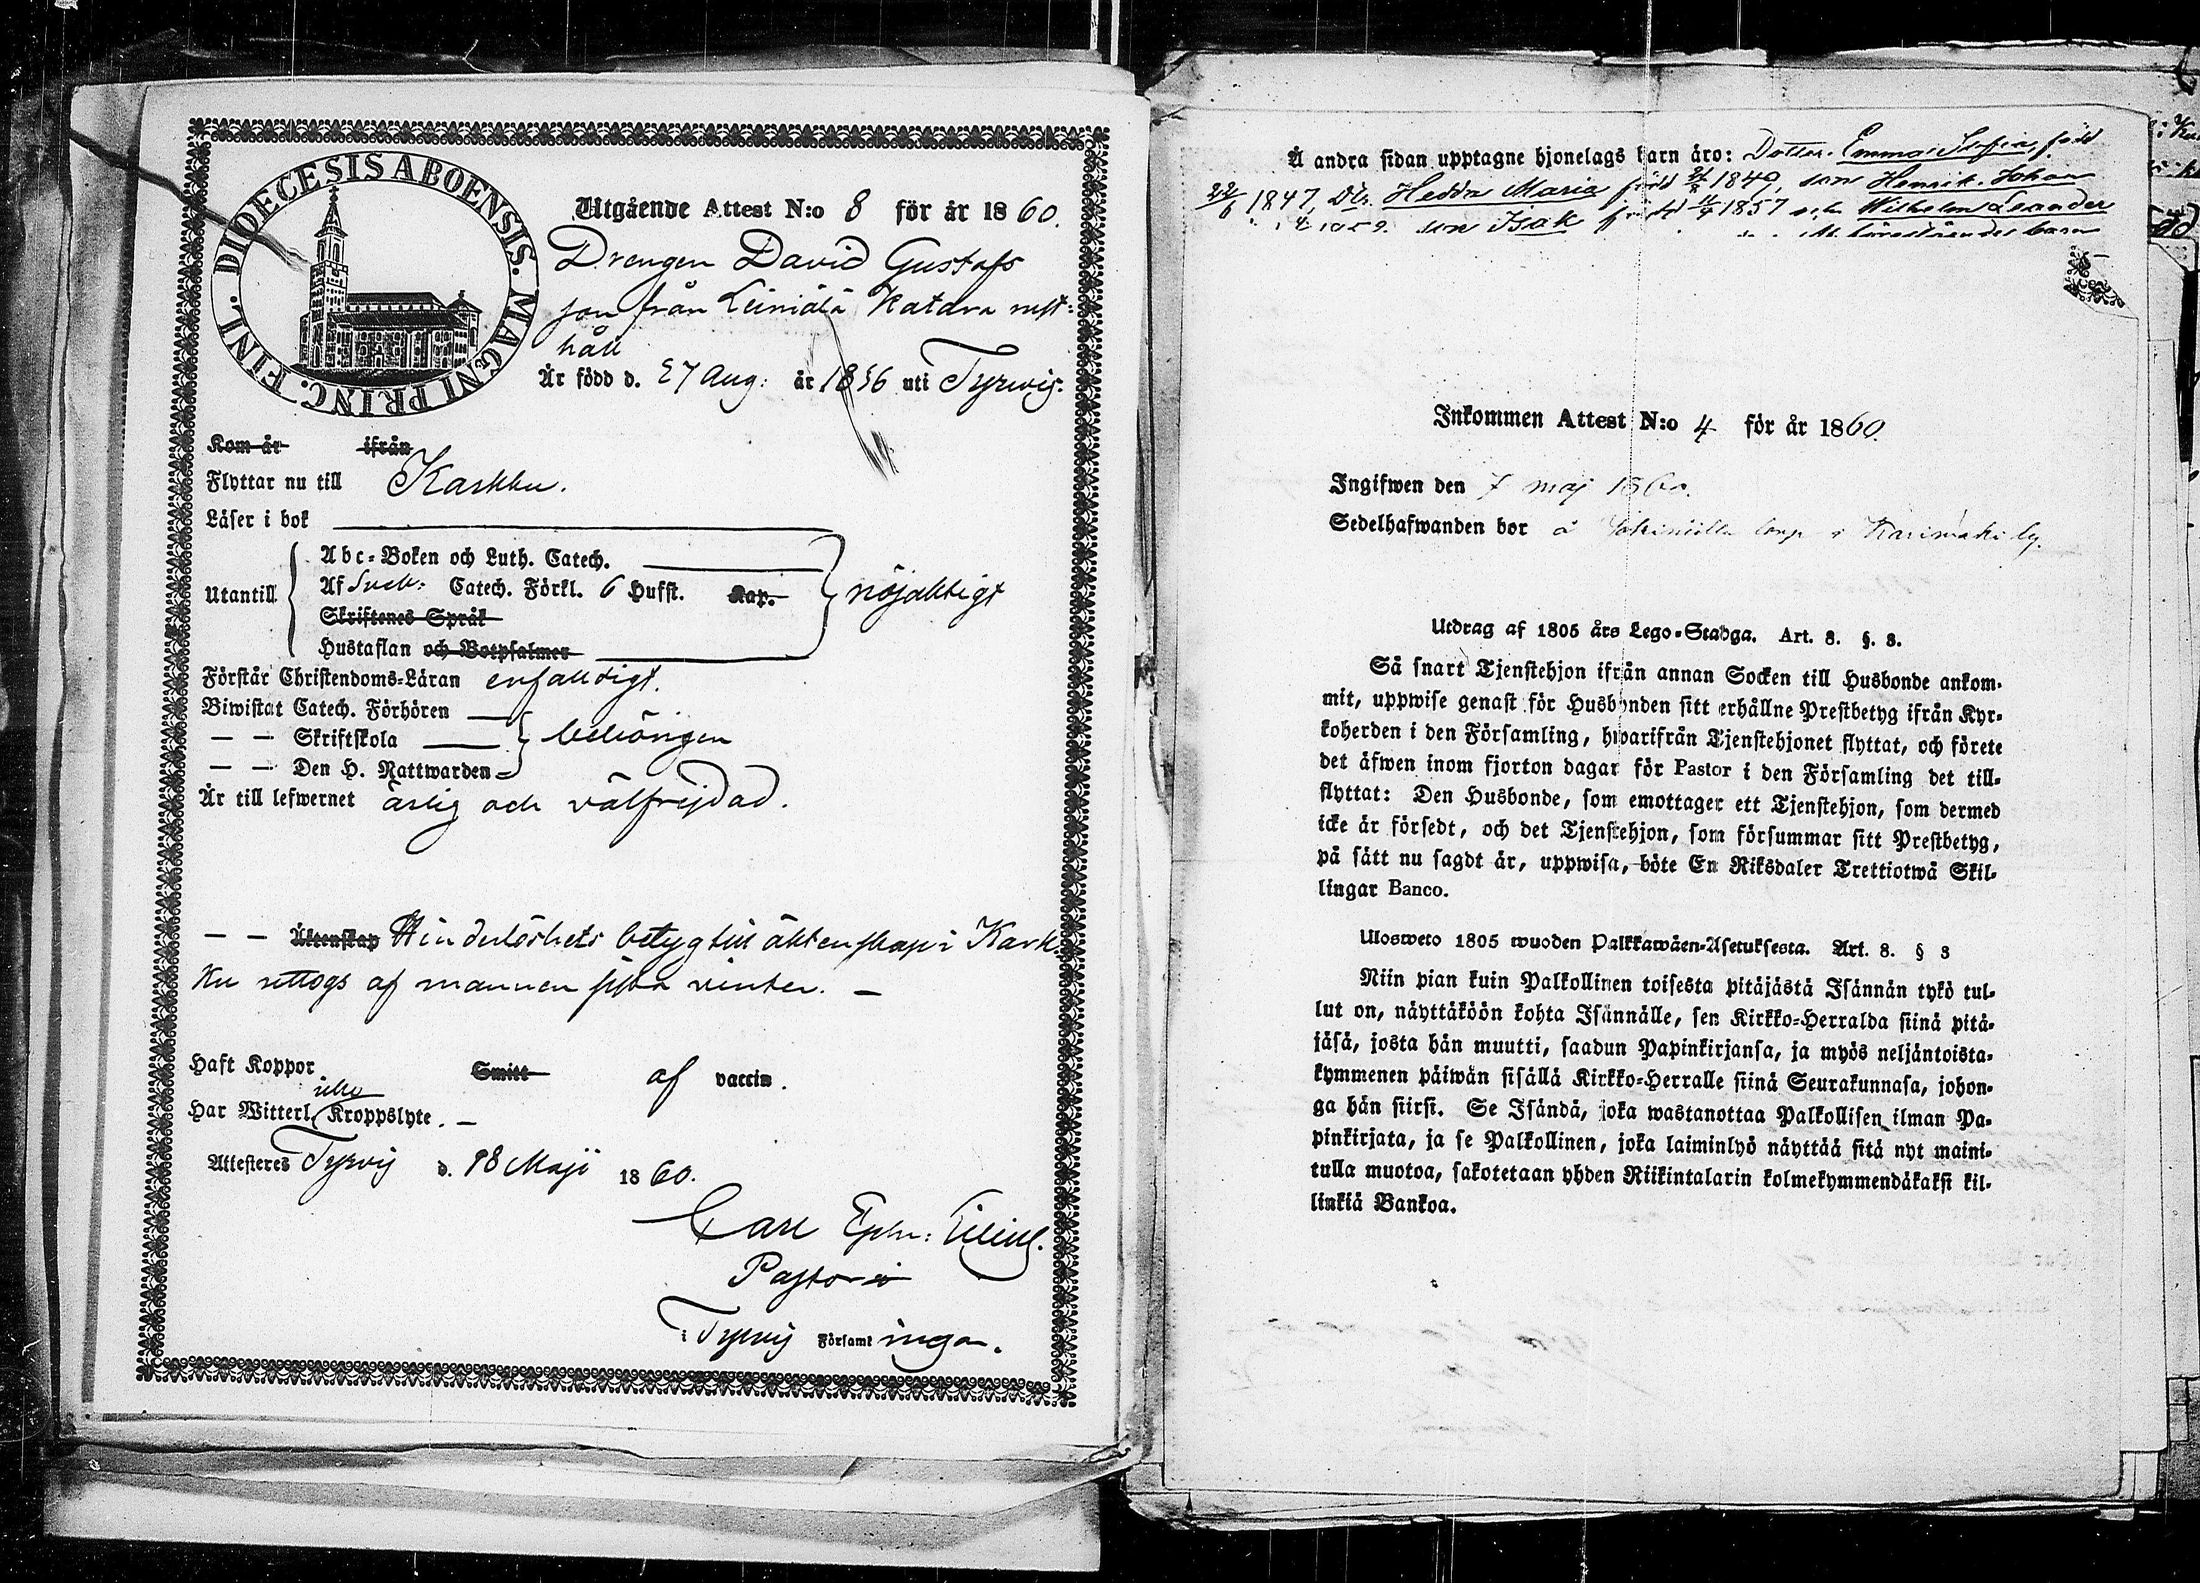 DIOECESIS ABOENSIS. MAGNI PRINC. FINL.
Utgående Attest N:o 8 för år 1860.
Drengen David Gustafs
son från Leiniälä Katara rust:
håll
Är född d. 27 Aug: år 1836 uti Tyrvis.
Kom år ifrån
Flyttar nu till Karkku.
Läser i bok
Utantill
Abc-Boken och Luth. Catech.
Af Sveb: Catech. Förkl. 6 Hufst. Kap.
nöjaktigt
Skriftenes Språk
Hustaflan och Botpsalmer
Förstår Christendoms-Läran enfalldigt.
Biwistat Catech. Förhören
— — Skriftskola
behörigen
— — Den H. Nattwarden
Är till lefwernet ärlig och välfrejdad.
— — Äktenskap Hinderlöshets betyg till äktenskap i Kark-
ku uttogs af mannen sista vinter. —
Haft Koppor Smitt af vaccin.
icke
Har Witterl. Kroppslyte. —
Attesteres Tyrvis d. 18 Maji 1860.
Carl Ephr:
Pastor
i Tyrvis Församlingar.
Å andra sidan upptagne hjonelags barn äro: Dotter. Emma Sofia, född
22/6 1847, Dtr. Hedda Maria född 1849, son Henrik Johan
son Isak född 1857 och Wilhelm Leander
Inkommen Attest N:o 4 för år 1860.
Ingifwen den 7 maj 1860.
Sedelhafwanden bor å torp i Karimäki by.
Utdrag af 1805 års Lego-Stadga. Art. 8. §. 3.
Så snart Tjenstehjon ifrån annan Socken till Husbonde ankom-
mit, uppwise genast för Husbonden sitt erhållne Prestbetyg ifrån Kyr-
koherden i den Församling, hwarifrån Tjenstehjonet flyttat, och förete
det äfwen inom fjorton dagar för Pastor i den Församling det till-
flyttat: Den Husbonde, som emottager ett Tjenstehjon, som dermed
icke är försedt, och det Tjenstehjon, som försummar sitt Prestbetyg,
på sätt nu sagdt är, uppwisa, böte En Riksdaler Trettiotwå Skil-
lingar Banco.
Ulosweto 1805 wuoden Palkkawäen-Asetuksesta. Art. 8. § 3
Niin pian kuin Palkollinen toisesta pitäjästä Isännän tykö tul-
lut on, näyttäköön kohta Isännälle, sen Kirkko-Herralda siinä pitä-
jäsä, josta hän muutti, saadun Papinkirjansa, ja myös neljäntoista-
kymmenen päiwän sisällä Kirkko-Herralle siinä Seurakunnasa, johon-
ga hän siirsi. Se Isändä, joka wastanottaa Palkollisen ilman Pa-
pinkirjata, ja se Palkollinen, joka laiminlyö näyttää sitä nyt maini-
tulla muotoa, sakotetaan yhden Riikintalarin kolmekymmendäkaksi kil-
linkiä Bankoa.